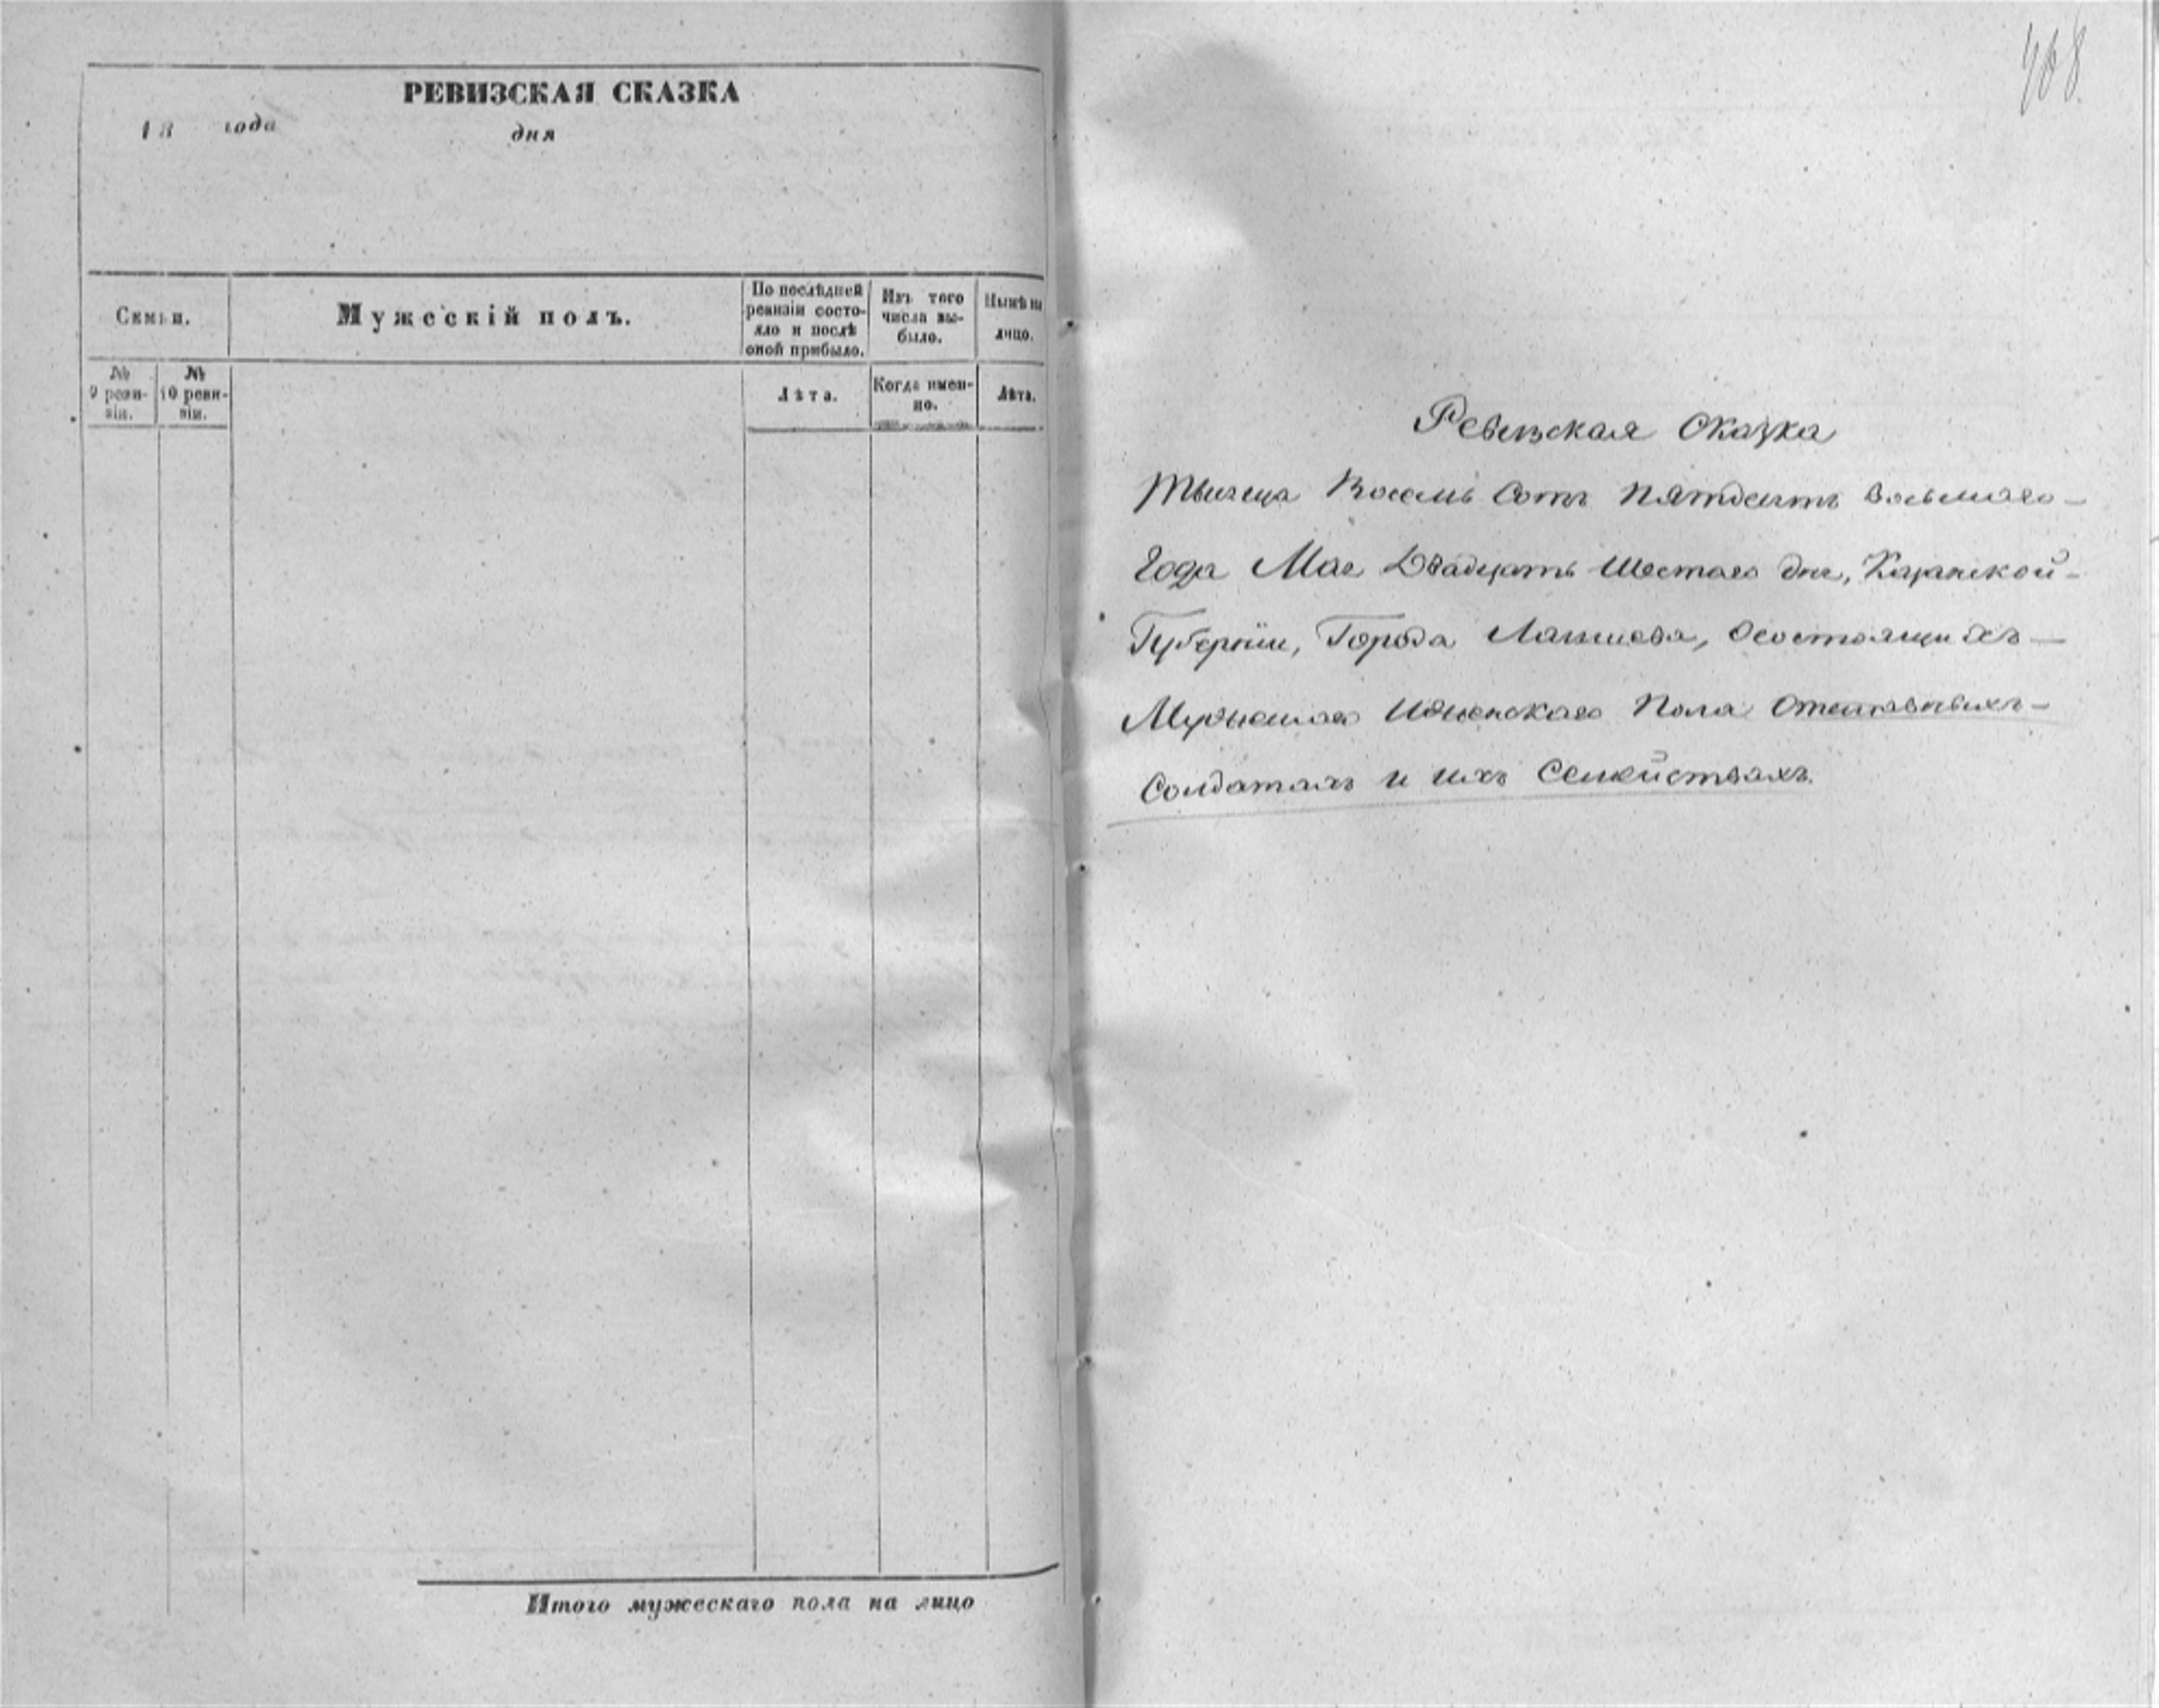 РЕВИЗСКАЯ СКАЗКА
18 года дня
Семьи.
Мужескій полъ.
По послѣдней
ревизіи состо-
яло и послѣ
оной прибыло.
Изъ того
числа вы-
было.
Нынѣ на
лицо.
№
9 реви-
зіи.
№
10 реви-
зіи.
Лѣта.
Когда имен-
но.
Лѣта.
Итого мужескаго пола на лицо
468
Ревизская Сказка
Тысеца Восемь Сотъ Пятдесятъ восьмаго
Года Мая Двадцать Шестаго дня, Казанской
Губерніи, Города Лаишева, Осостоящихъ
Мужескаго Иженскаго Пола Отставныхъ
Солдатахъ и ихъ Семействахъ.